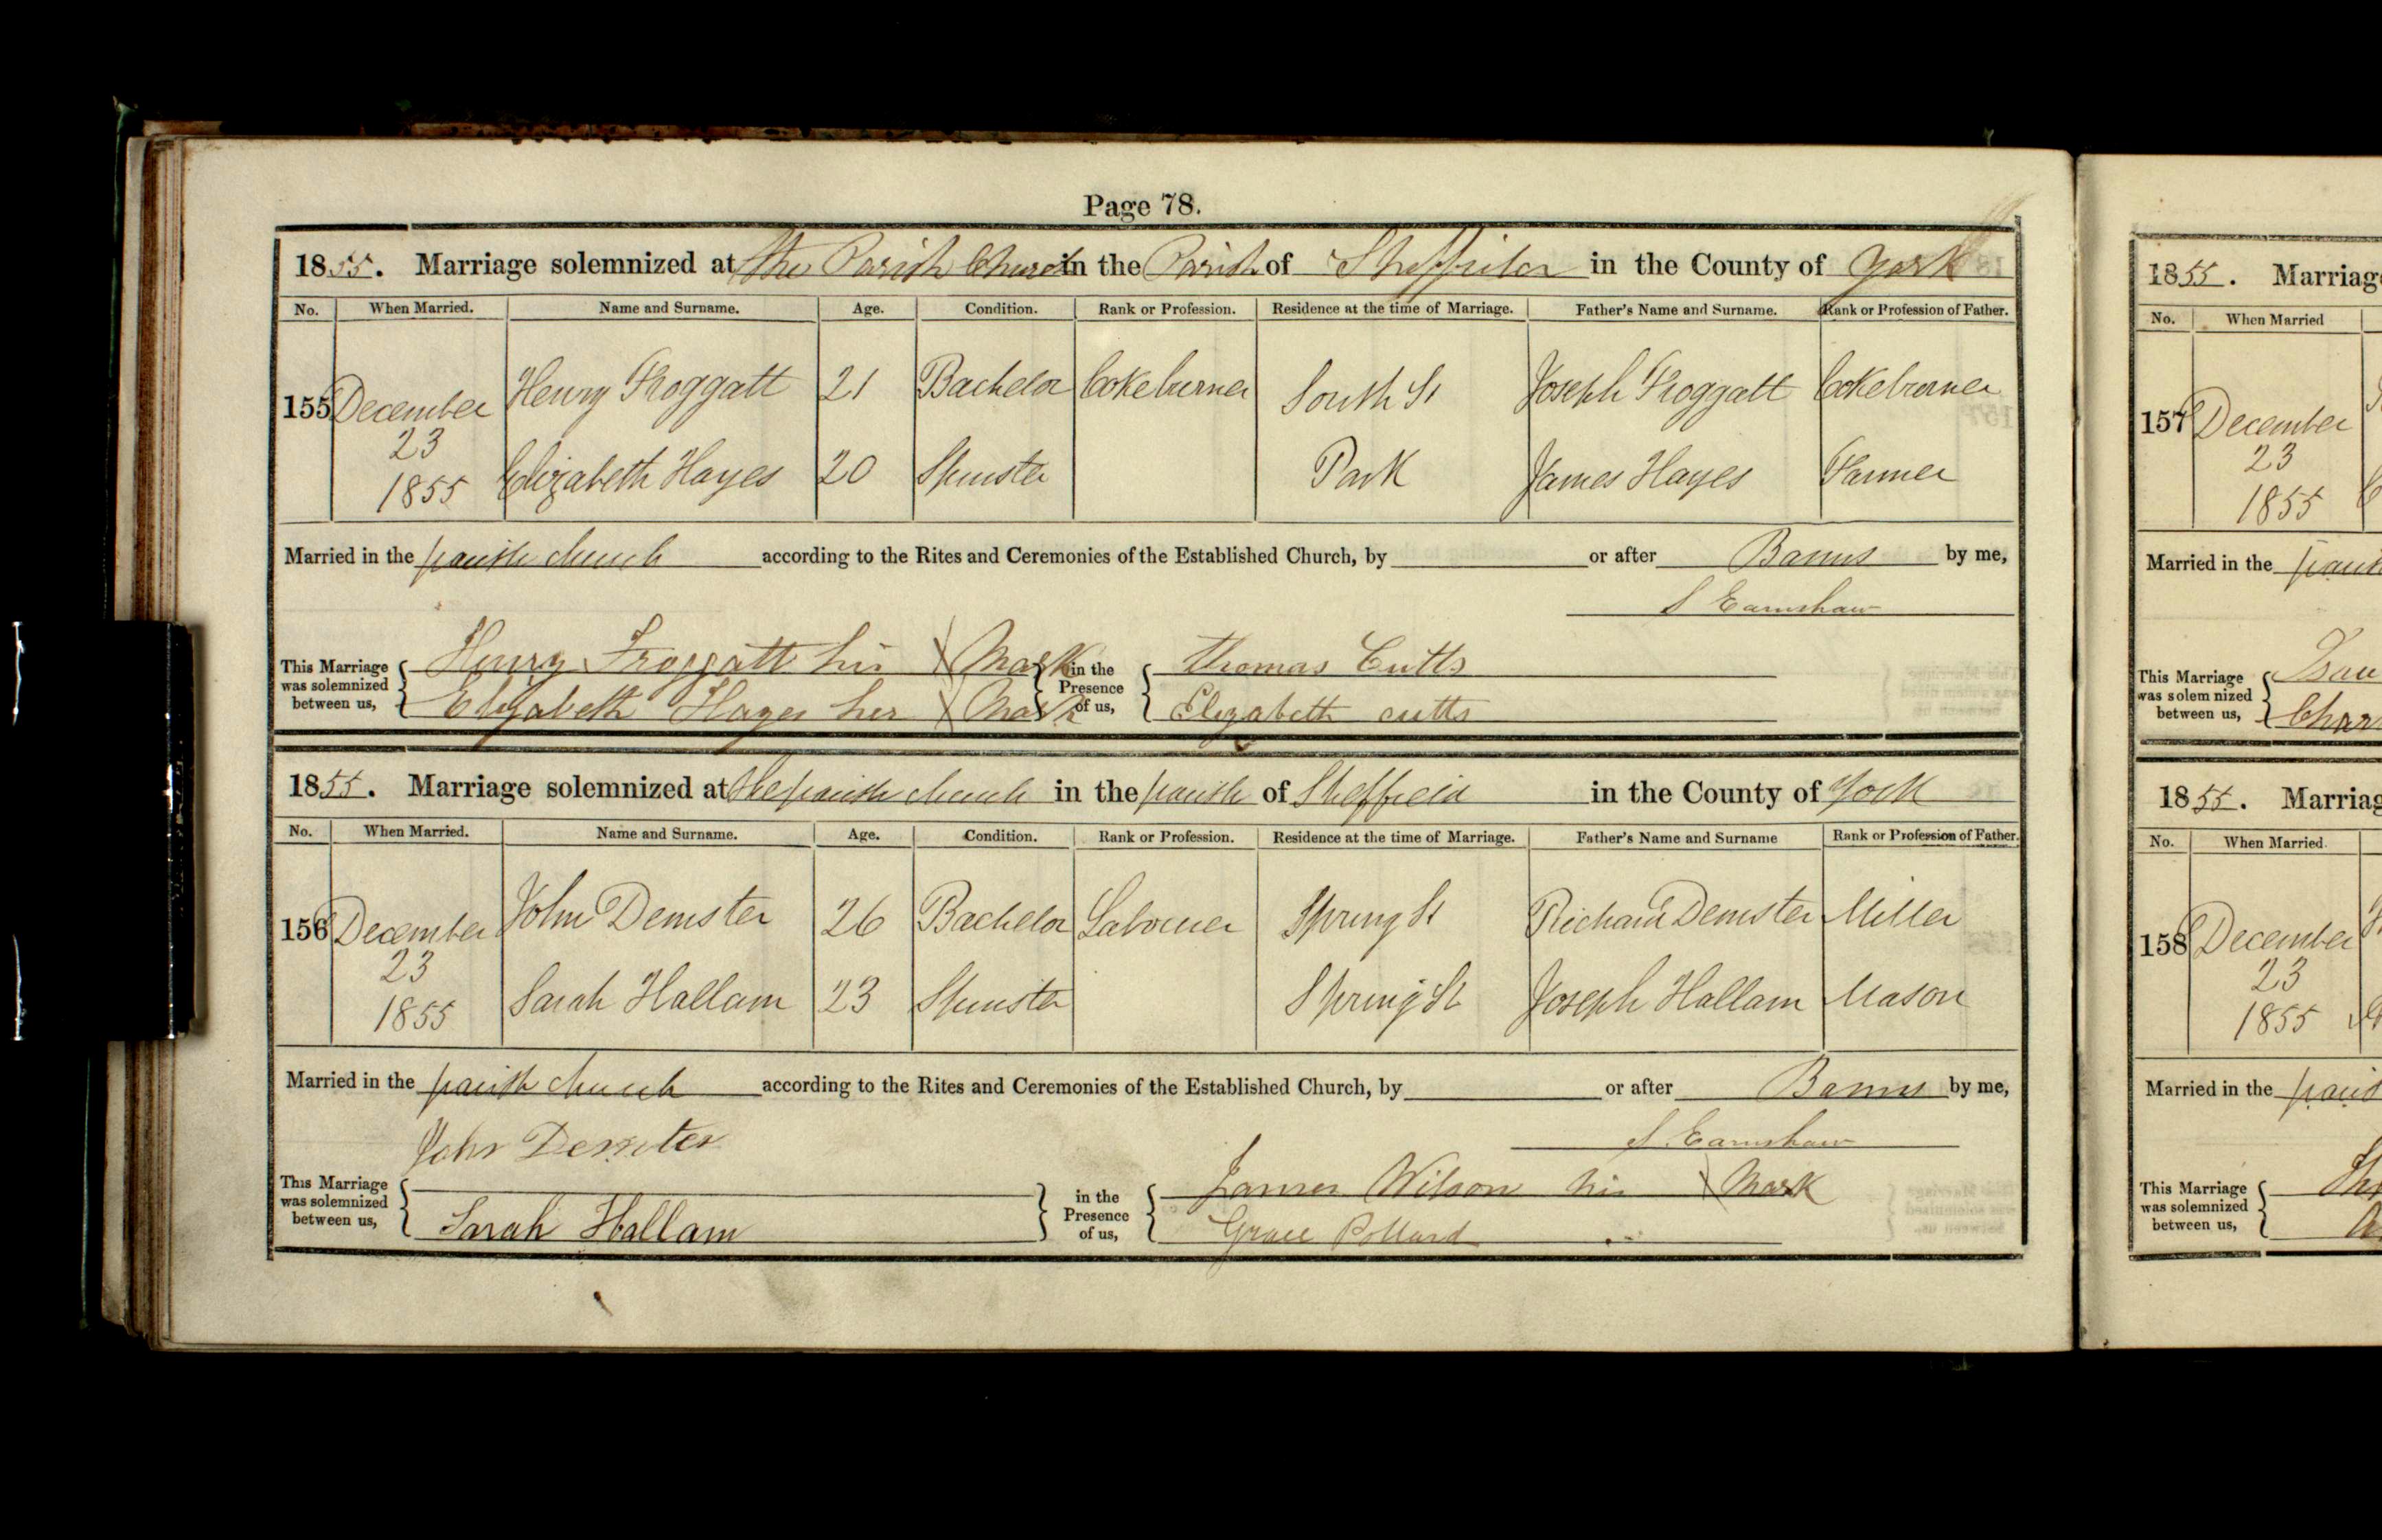 Page 78.
1855. Marriage solemnized at the Parish Church in the Parish of Sheffield in the County of York
No. When Married. Name and Surname. Age. Condition. Rank or Profession. Residence at the time of Marriage. Father's Name and Surname. Rank or Profession of Father.
155 December 23 1855 Henry Froggatt 21 Bachelor Cokeburner South St Joseph Froggatt Cokeburner
Elizabeth Hayes 20 Spinster Park James Hayes Farmer
Married in the parish church according to the Rites and Ceremonies of the Established Church, by or after Banns by me,
S Earnshaw
This Marriage was solemnized between us, Henry Froggatt his X Mark in the Presence of us, Thomas Cutts
Elizabeth Hayes her X Mark Elizabeth cutts
1855. Marriage solemnized at the parish church in the parish of Sheffield in the County of York
No. When Married. Name and Surname. Age. Condition. Rank or Profession. Residence at the time of Marriage. Father's Name and Surname Rank or Profession of Father.
156 December 23 1855 John Demster 26 Bachelor Labourer Spring St Richard Demster Miller
Sarah Hallam 23 Spinster Spring St Joseph Hallam Mason
Married in the parish church according to the Rites and Ceremonies of the Established Church, by or after Banns by me,
S Earnshaw
John
This Marriage was solemnized between us, Sarah Hallam in the Presence of us, James Wilson his X Mark
Grace Pollard
1855. Marriag
No. When Married
157 December 23 1855
Married in the
This Marriage was solemnized between us,
1855. Marriag
No. When Married.
158 December 23 1855
Married in the
This Marriage was solemnized between us,